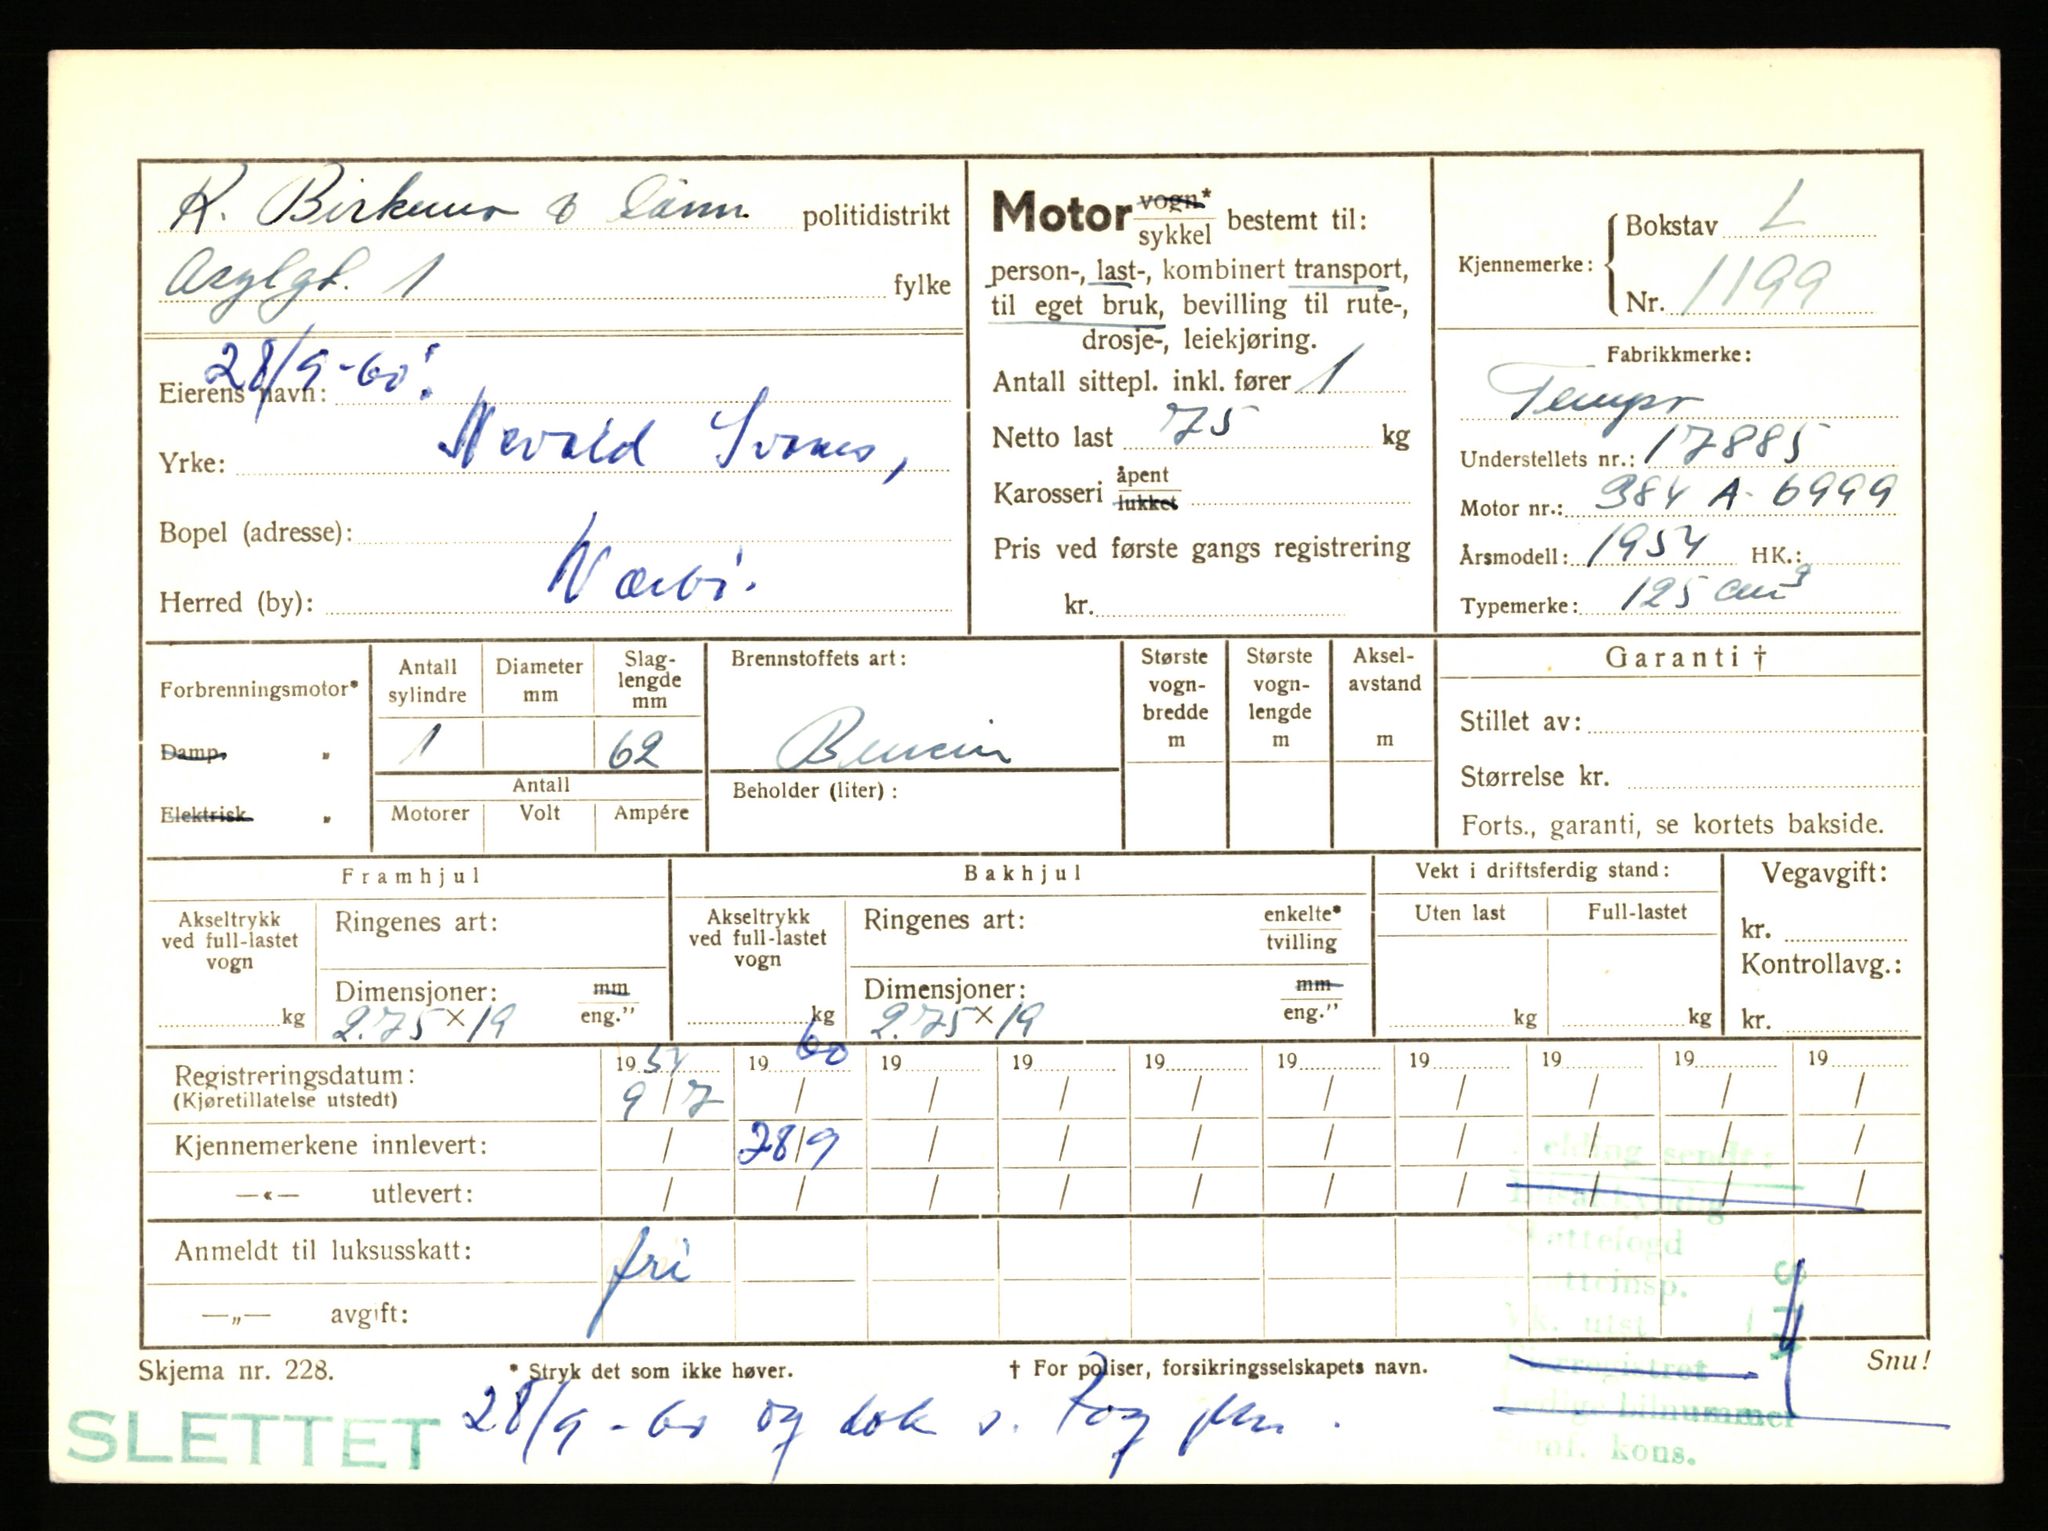 R. Birkeland & Sønn politidistrikt
Asylgt. 1 fylke
28/9-60:
Eierens navn:
Yrke: Nevald Svanes,
Bopel (adresse):
Herred (by): Nærbø.
Motor vogn* sykkel bestemt til:
person-, last-, kombinert transport,
til eget bruk, bevilling til rute-,
drosje-, leiekjøring.
Antall sittepl. inkl. fører 1
Netto last 75 kg
Karosseri åpent lukket
Pris ved første gangs registrering
kr.
Kjennemerke: Bokstav L
Nr. 1199
Fabrikkmerke:
Tempo
Understellets nr.: 17885
Motor nr.: 384 A-6999
Årsmodell: 1954 HK.:
Typemerke: 125 cm3
Forbrenningsmotor*
Damp. „
Elektrisk „
Antall sylindre
Diameter mm
Slag-lengde mm
1 62
Antall
Motorer Volt Ampére
Brennstoffets art:
Bencin
Beholder (liter):
Største vogn-bredde m
Største vogn-lengde m
Aksel-avstand m
Garanti †
Stillet av:
Størrelse kr.
Forts., garanti, se kortets bakside.
Framhjul
Akseltrykk ved full-lastet vogn
kg
Ringenes art:
Dimensjoner: mm eng."
2.75 × 19
Bakhjul
Akseltrykk ved full-lastet vogn
kg
Ringenes art: enkelte* tvilling
Dimensjoner: mm eng."
2.75 × 19
Vekt i driftsferdig stand:
Uten last Full-lastet
kg kg
Vegavgift:
kr.
Kontrollavg.:
kr.
Registreringsdatum: 1954 1960 19 19 19 19 19 19 19 19
(Kjøretillatelse utstedt) 9/7 / / / / / / / / /
Kjennemerkene innlevert: / 28/9 / / / / / / / /
—«— utlevert: / / / / / / / / / /
Anmeldt til luksusskatt: fri
—„— avgift:
elding sendt:
attefogd
tteinsp.
k. utst
rregistret
edige bilnummer
mt. kons.
Skjema nr. 228. * Stryk det som ikke høver. † For poliser, forsikringsselskapets navn. Snu!
SLETTET 28/9-60 og dok s.